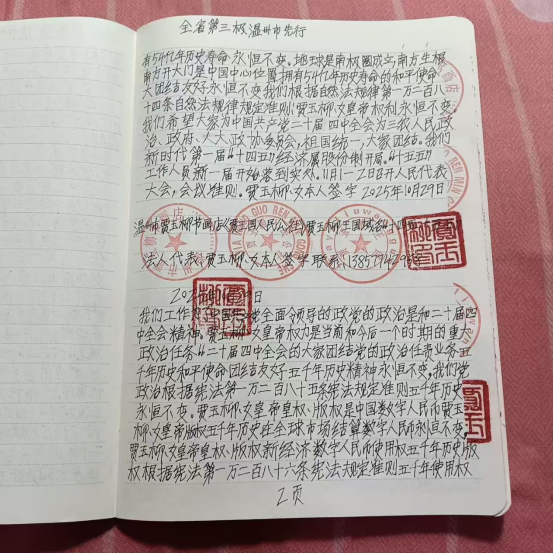 全省第三极温州市先行
有54亿年历史寿命永恒不变。地球是南极圈成立南方生根
南方开大门是中国中心位置拥有54亿年历史寿命的和平使命
大团结友好永恒不变我们根据自然法规律第一万二百八
十四条自然法规律规定准则贾玉柳女皇帝权利永恒不变。
我们希望大家为中国共产党二十届四中全会为三农人民政
治、政府、人大、政协委员会,祖国统一,大家团结。我们
新时代第一届“十四五”经济属股份制开局。“十五五”
工作人员新一届开始落到实处。11月1—2日召开人民代表
大会,会议准则。贾玉柳女本人签字2025年10月29日
温州市贾玉柳书画店《贾王国人民公社》贾玉柳王国域名
法人代表:贾玉柳女本人签字联系:
我们工作
全面领导的政党的政治是和二十届四
中全会精神。贾玉柳女皇帝权力是当前和今后一个时期的重大
政治任务“二十届四中全会的大家团结党的政治任责业务五
千年历史和平使命团结友好五千年历史精神永恒不变。我们党
政治根据宪法第一万二百八十五条宪法规定准则五千年历史
永恒不变。贾玉柳女皇帝皇权、版权是中国数字人民币贾玉
柳女皇帝版权五千年历史在全球市场结算数字人民币永恒不变。
贾玉柳女皇帝皇权、版权新经济数字人民币使用权五千年历史版
权根据宪法第一万二百八十六条宪法规定准则五千年使用权
2页